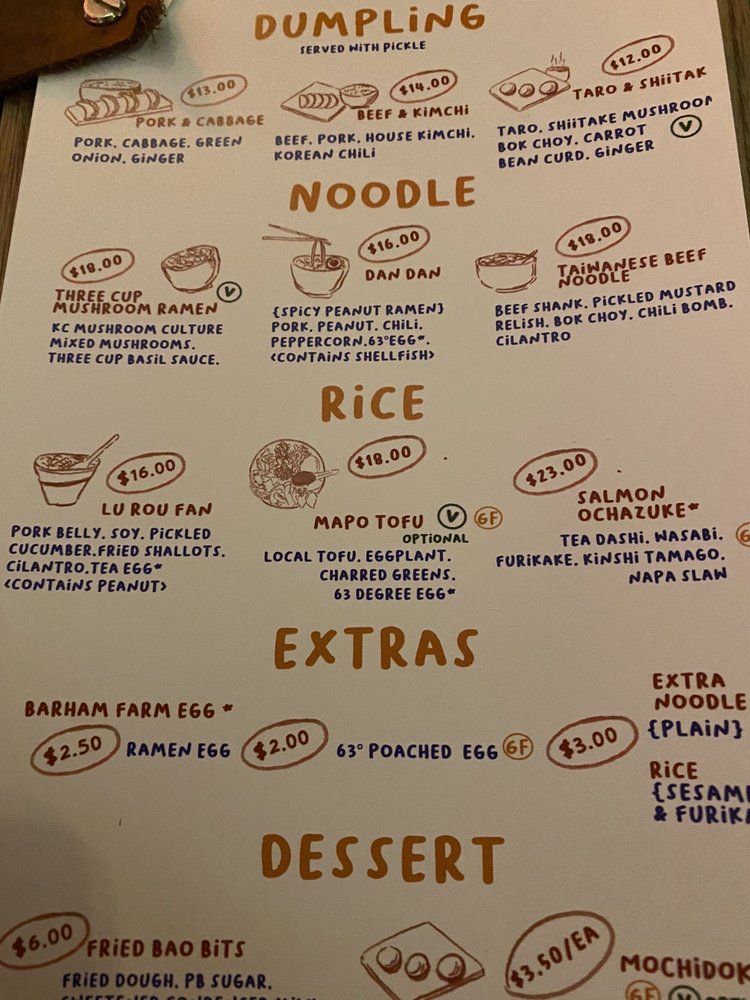 DUMPLiNG
SERVED WITH PICKLE
$13.00
PORK & CABBAGE
PORK. CABBAGE. GREEN
ONION. GINGER
$14.00
BEEF & KiMCHi
BEEF. PORK. HOUSE KIMCHI.
KOREAN CHILI
$12.00
TARO & SHiiTAK
TARO. SHIITAKE MUSHROOM
BOK CHOY. CARROT
BEAN CURD. GINGER
V
NOODLE
$18.00
THREE CUP
MUSHROOM RAMEN V
KC MUSHROOM CULTURE
MIXED MUSHROOMS.
THREE CUP BASIL SAUCE.
$16.00
DAN DAN
{SPICY PEANUT RAMEN}
PORK. PEANUT. CHILI.
PEPPERCORN.63°EGG*.
<CONTAINS SHELLFISH>
$18.00
TAIWANESE BEEF
NOODLE
BEEF SHANK. PICKLED MUSTARD
RELISH. BOK CHOY. CHILI BOMB.
CILANTRO
RiCE
$16.00
LU ROU FAN
PORK BELLY. SOY. PICKLED
CUCUMBER.FRIED SHALLOTS.
CILANTRO.TEA EGG*
<CONTAINS PEANUT>
$18.00
MAPO TOFU V GF
OPTIONAL
LOCAL TOFU. EGGPLANT.
CHARRED GREENS.
63 DEGREE EGG*
$23.00
SALMON
OCHAZUKE*
TEA DASHI. WASABI.
FURIKAKE. KINSHI TAMAGO.
NAPA SLAW
EXTRAS
BARHAM FARM EGG *
$2.50 RAMEN EGG
$2.00 63° POACHED EGG GF
$3.00
EXTRA
NOODLE
{PLAIN}
RiCE
{SESAM
& FURIKA
DESSERT
$6.00 FRiED BAO BiTS
FRIED DOUGH. PB SUGAR.
$3.50/EA
MOCHiDO
GF